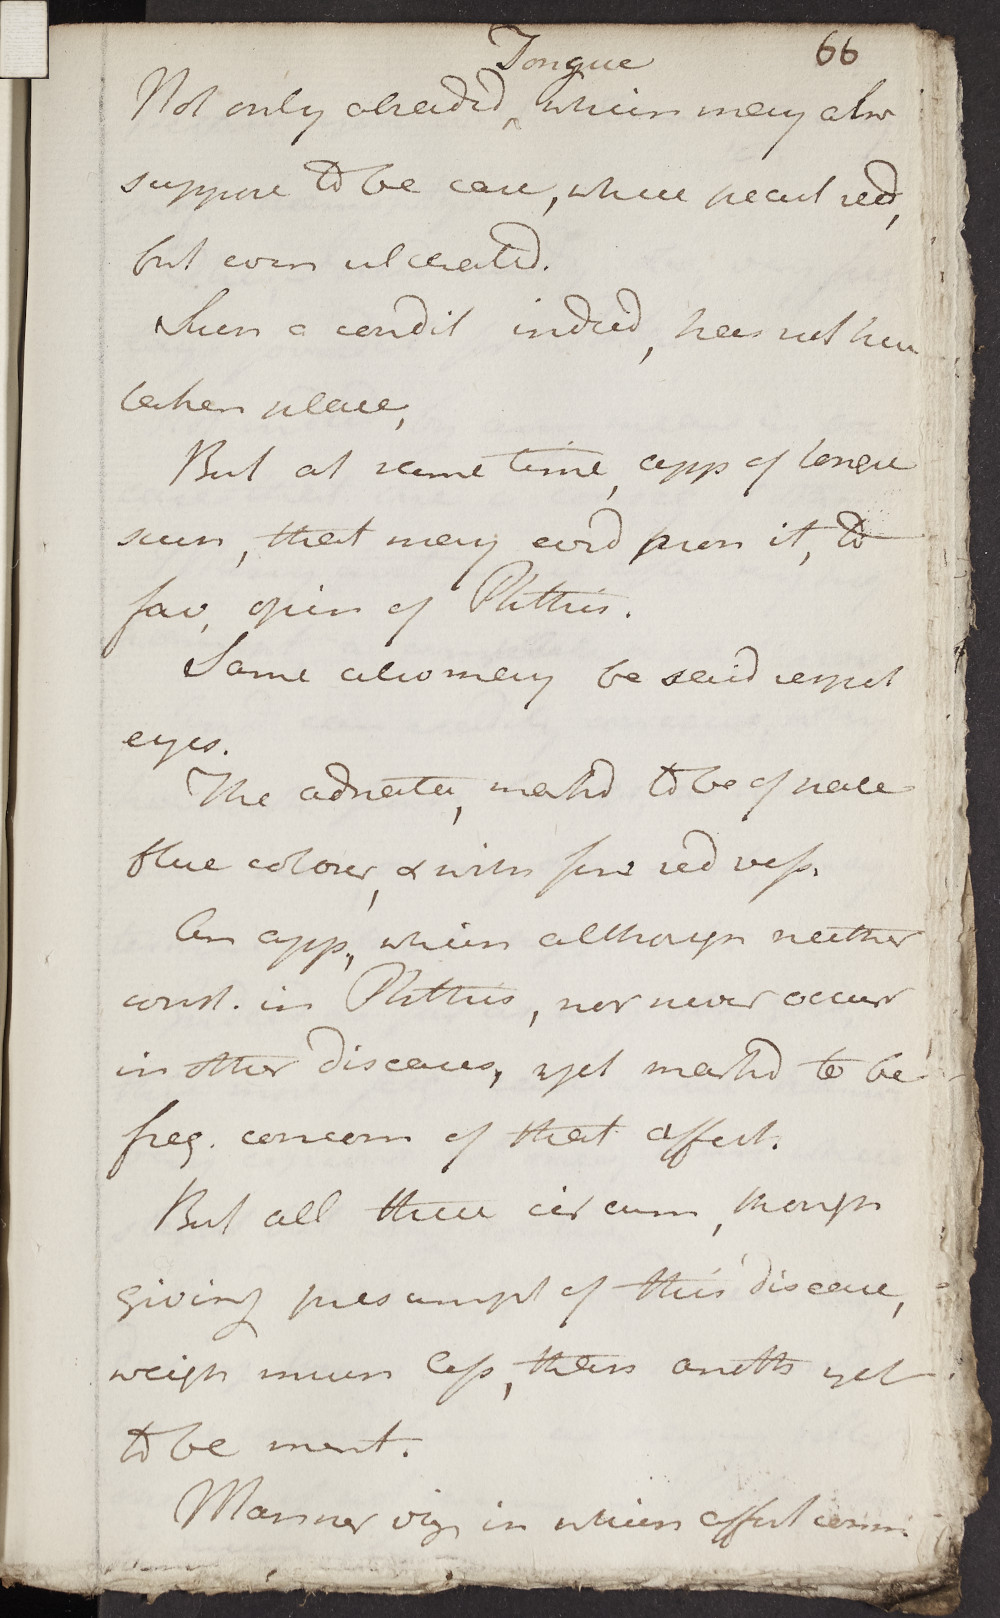 Tongue 66
Not only abraded, which may also
suppose to be case, where part red,
but even ulcerated.
Such a condit indeed, has not here
taken place,
But at same time, app of tongue
such, that may add from it, to
fav. opin of Phthis.
Same also may be said respect
eyes.
The adnata, markd to be of pale
blue colour, & with few red vess.
An app, which although neither
const. in Phthis, nor never occurr
in other diseases, yet markd to be
freq. concom of that affect.
But all these circum, though
giving presumpt of this disease,
weigh much less, than anoth yet
to be ment.
Manner viz in which affect comm.